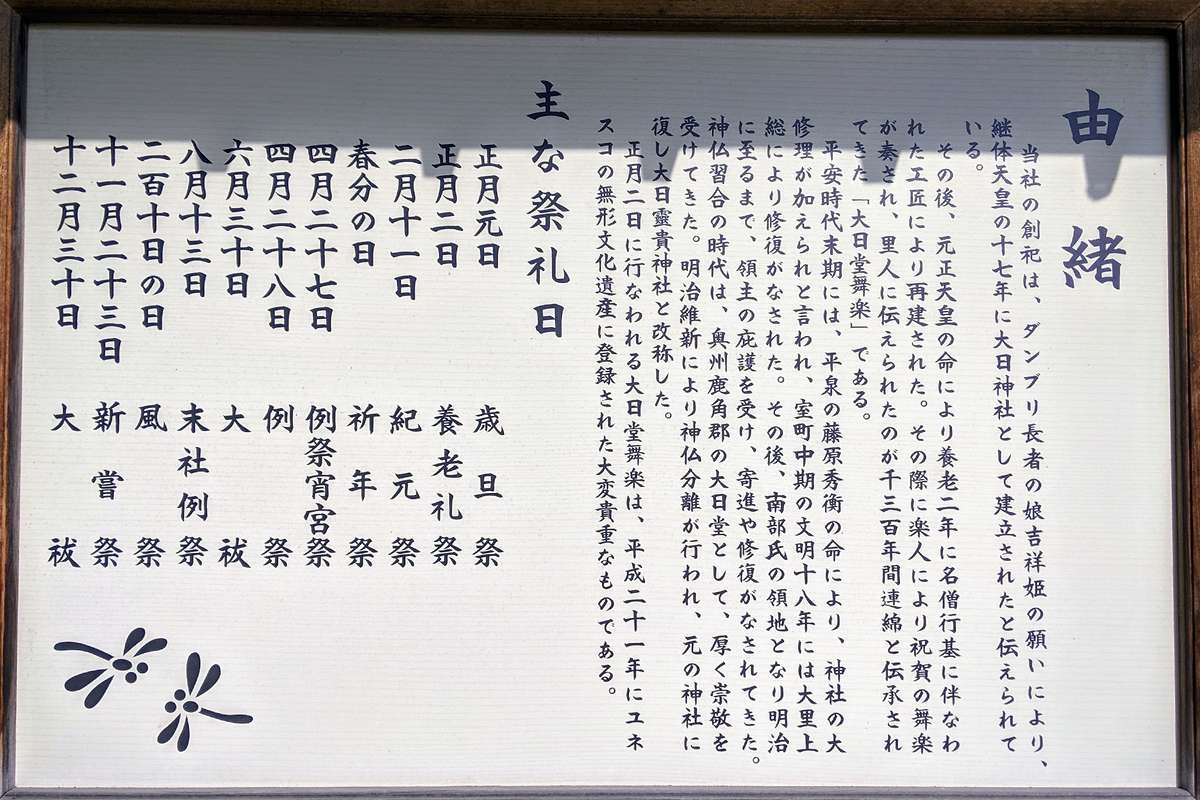 由緒
当社の創祀は、ダンブリ長者の娘吉祥姫の願いにより、
継体天皇の十七年に大日神社として建立されたと伝えられて
いる。
その後、元正天皇の命により養老二年に名僧行基に伴なわ
れた工匠により再建された。その際に楽人により祝賀の舞楽
が奏され、里人に伝えられたのが千三百年間連綿と伝承され
てきた「大日堂舞楽」である。
平安時代末期には、平泉の藤原秀衡の命により、神社の大
修理が加えられと言われ、室町中期の文明十八年には大里上
総により修復がなされた。その後、南部氏の領地となり明治
に至るまで、領主の庇護を受け、寄進や修復がなされてきた。
神仏習合の時代は、奥州鹿角郡の大日堂として、厚く崇敬を
受けてきた。明治維新により神仏分離が行われ、元の神社に
復し大日靈貴神社と改称した。
正月二日に行なわれる大日堂舞楽は、平成二十一年にユネ
スコの無形文化遺産に登録された大変貴重なものである。
主な祭礼日
正月元日 歳旦祭
正月二日 養老礼祭
二月十一日 紀元祭
春分の日 祈年祭
四月二十七日 例祭宵宮祭
四月二十八日 例祭
六月三十日 大祓
八月十三日 末社例祭
二百十日の日 風祭
十一月二十三日 新嘗祭
十二月三十日 大祓